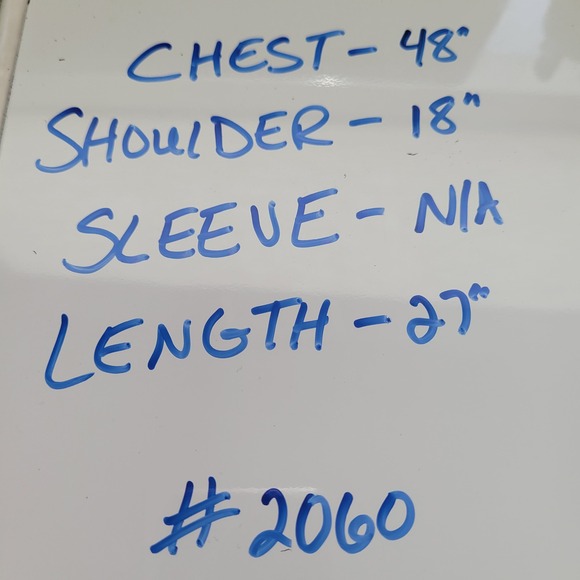 CHEST - 48"
SHOULDER - 18"
SLEEVE - N/A
LENGTH - 27"
#2060